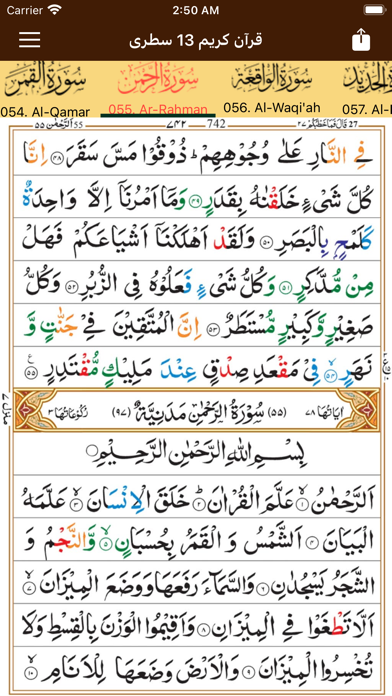 Carrier 2:50 AM
قرآن کریم 13 سطری
سورة القمر سورة الرحمن سورة الواقعة
054. Al-Qamar 055. Ar-Rahman 056. Al-Waqi'ah 057. Al-
الرحمٰن ٥٥ 55 ٧٤٢ 742 قال فما خطبکم ٢٧ 27
فِي النَّارِ عَلٰى وُجُوْهِهِمْ ؕ ذُوْقُوْا مَسَّ سَقَرَ ﴿۴۸﴾ اِنَّا
كُلَّ شَیْءٍ خَلَقْنٰهُ بِقَدَرٍ ﴿۴۹﴾ وَمَاۤ اَمْرُنَاۤ اِلَّا وَاحِدَةٌ
كَلَمْحٍۭ بِالْبَصَرِ ﴿۵۰﴾ وَلَقَدْ اَهْلَكْنَاۤ اَشْيَاعَكُمْ فَهَلْ
مِنْ مُّدَّكِرٍ ﴿۵۱﴾ وَكُلُّ شَیْءٍ فَعَلُوْهُ فِي الزُّبُرِ ﴿۵۲﴾ وَكُلُّ
صَغِيْرٍ وَّكَبِيْرٍ مُّسْتَطَرٌ ﴿۵۳﴾ اِنَّ الْمُتَّقِيْنَ فِيْ جَنّٰتٍ وَّ
نَهَرٍ ﴿۵۴﴾ فِيْ مَقْعَدِ صِدْقٍ عِنْدَ مَلِيْكٍ مُّقْتَدِرٍ ﴿۵۵﴾
اٰيَاتُهَا ٧٨ (٥٥) سُوْرَةُ الرَّحْمٰنِ مَدَنِيَّةٌ (٩٧) رُكُوْعَاتُهَا ٣
بِسْمِ اللّٰهِ الرَّحْمٰنِ الرَّحِيْمِ
اَلرَّحْمٰنُ ﴿۱﴾ عَلَّمَ الْقُرْاٰنَ ﴿۲﴾ خَلَقَ الْاِنْسَانَ ﴿۳﴾ عَلَّمَهُ
الْبَيَانَ ﴿۴﴾ اَلشَّمْسُ وَ الْقَمَرُ بِحُسْبَانٍ ﴿۵﴾ وَّالنَّجْمُ وَ
الشَّجَرُ يَسْجُدٰنِ ﴿۶﴾ وَالسَّمَآءَ رَفَعَهَا وَوَضَعَ الْمِيْزَانَ ﴿۷﴾
اَلَّا تَطْغَوْا فِي الْمِيْزَانِ ﴿۸﴾ وَاَقِيْمُوا الْوَزْنَ بِالْقِسْطِ وَلَا
تُخْسِرُوا الْمِيْزَانَ ﴿۹﴾ وَالْاَرْضَ وَضَعَهَا لِلْاَنَامِ ﴿۱۰﴾